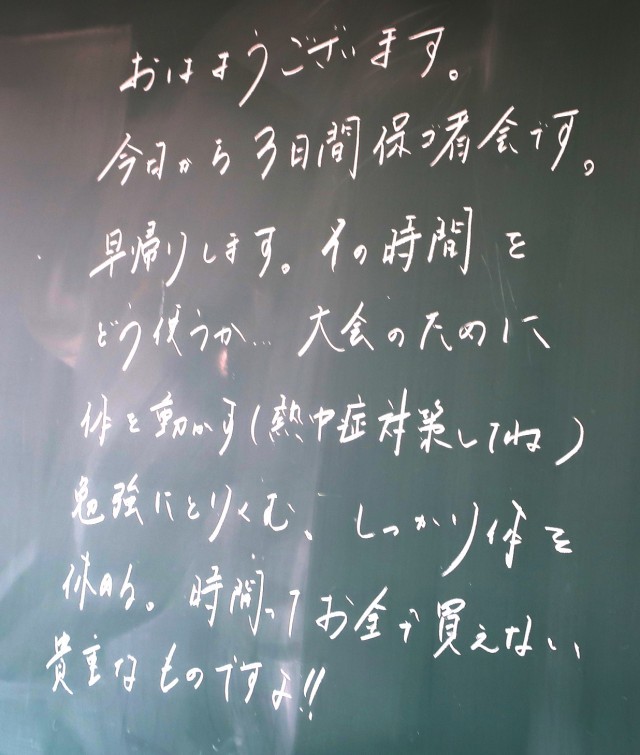 おはようございます。
今日から3日間保ゴ者会です。
早帰りします。その時間を
どう使うか… 大会のために
体を動かす(熱中症対策してね)
勉強にとりくむ、しっかり体を
休める。時間ってお金で買えない
貴重なものですよ!!